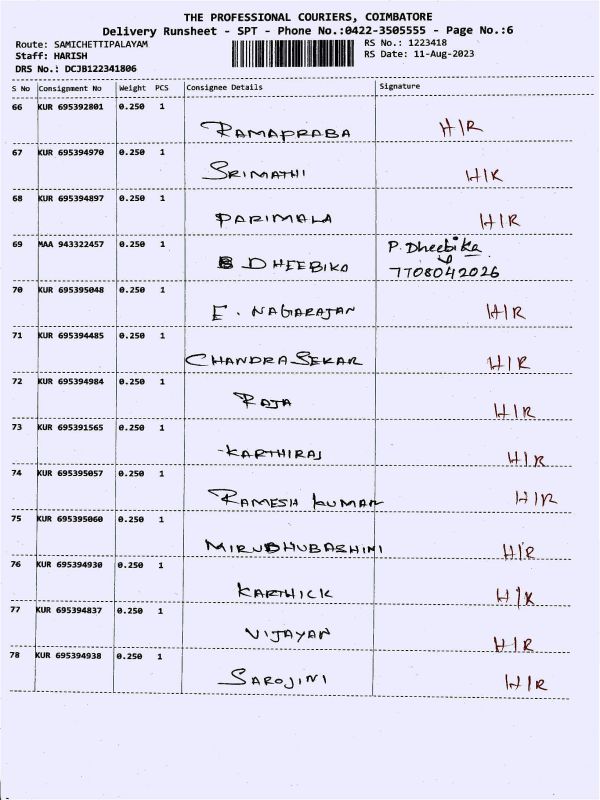 THE PROFESSIONAL COURIERS, COIMBATORE
Delivery Runsheet - SPT - Phone No.:0422-3505555 - Page No.:6
Route: SAMICHETTIPALAYAM RS No.: 1223418
Staff: HARISH RS Date: 11-Aug-2023
DRS No.: DCJB122341806
S No Consignment No Weight PCS Consignee Details Signature
66 KUR 695392801 0.250 1
RAMAPRABA H/R
67 KUR 695394970 0.250 1
SRIMATHI H/R
68 KUR 695394897 0.250 1
PARIMALA H/R
69 MAA 943322457 0.250 1 P. Dheebika
B DHEEBIKA 7708042026
70 KUR 695395048 0.250 1
E. NAGARAJAN H/R
71 KUR 695394485 0.250 1
CHANDRASEKAR H/R
72 KUR 695394984 0.250 1
RAJA H/R
73 KUR 695391565 0.250 1
KARTHIRAJ H/R
74 KUR 695395057 0.250 1
RAMESH KUMAR H/R
75 KUR 695395060 0.250 1
MIRUDHUBASHINI H/R
76 KUR 695394930 0.250 1
KARTHICK H/R
77 KUR 695394837 0.250 1
VIJAYAN H/R
78 KUR 695394938 0.250 1
SAROJINI H/R